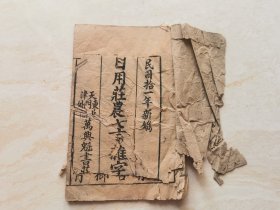 民國拾一年新編
日用莊農七言雜字
天津東門外
萬興魁書莊